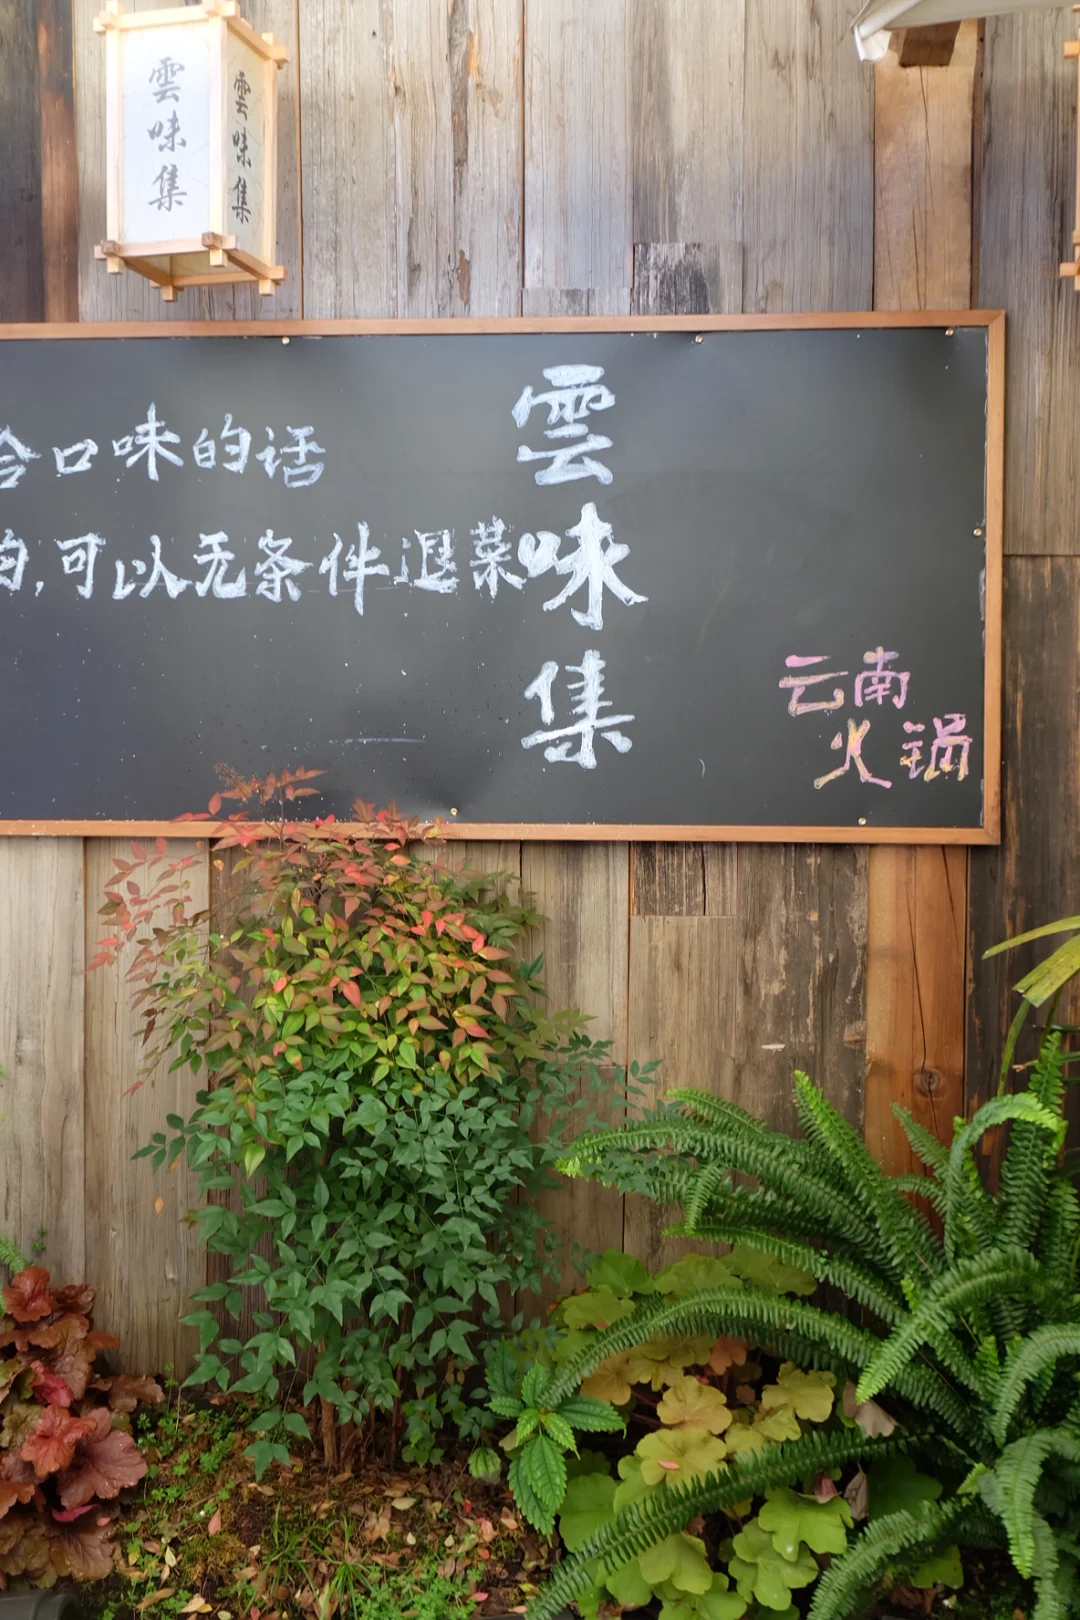 雲味集
雲味集
合口味的话
的,可以无条件退菜
雲味集
云南
火锅